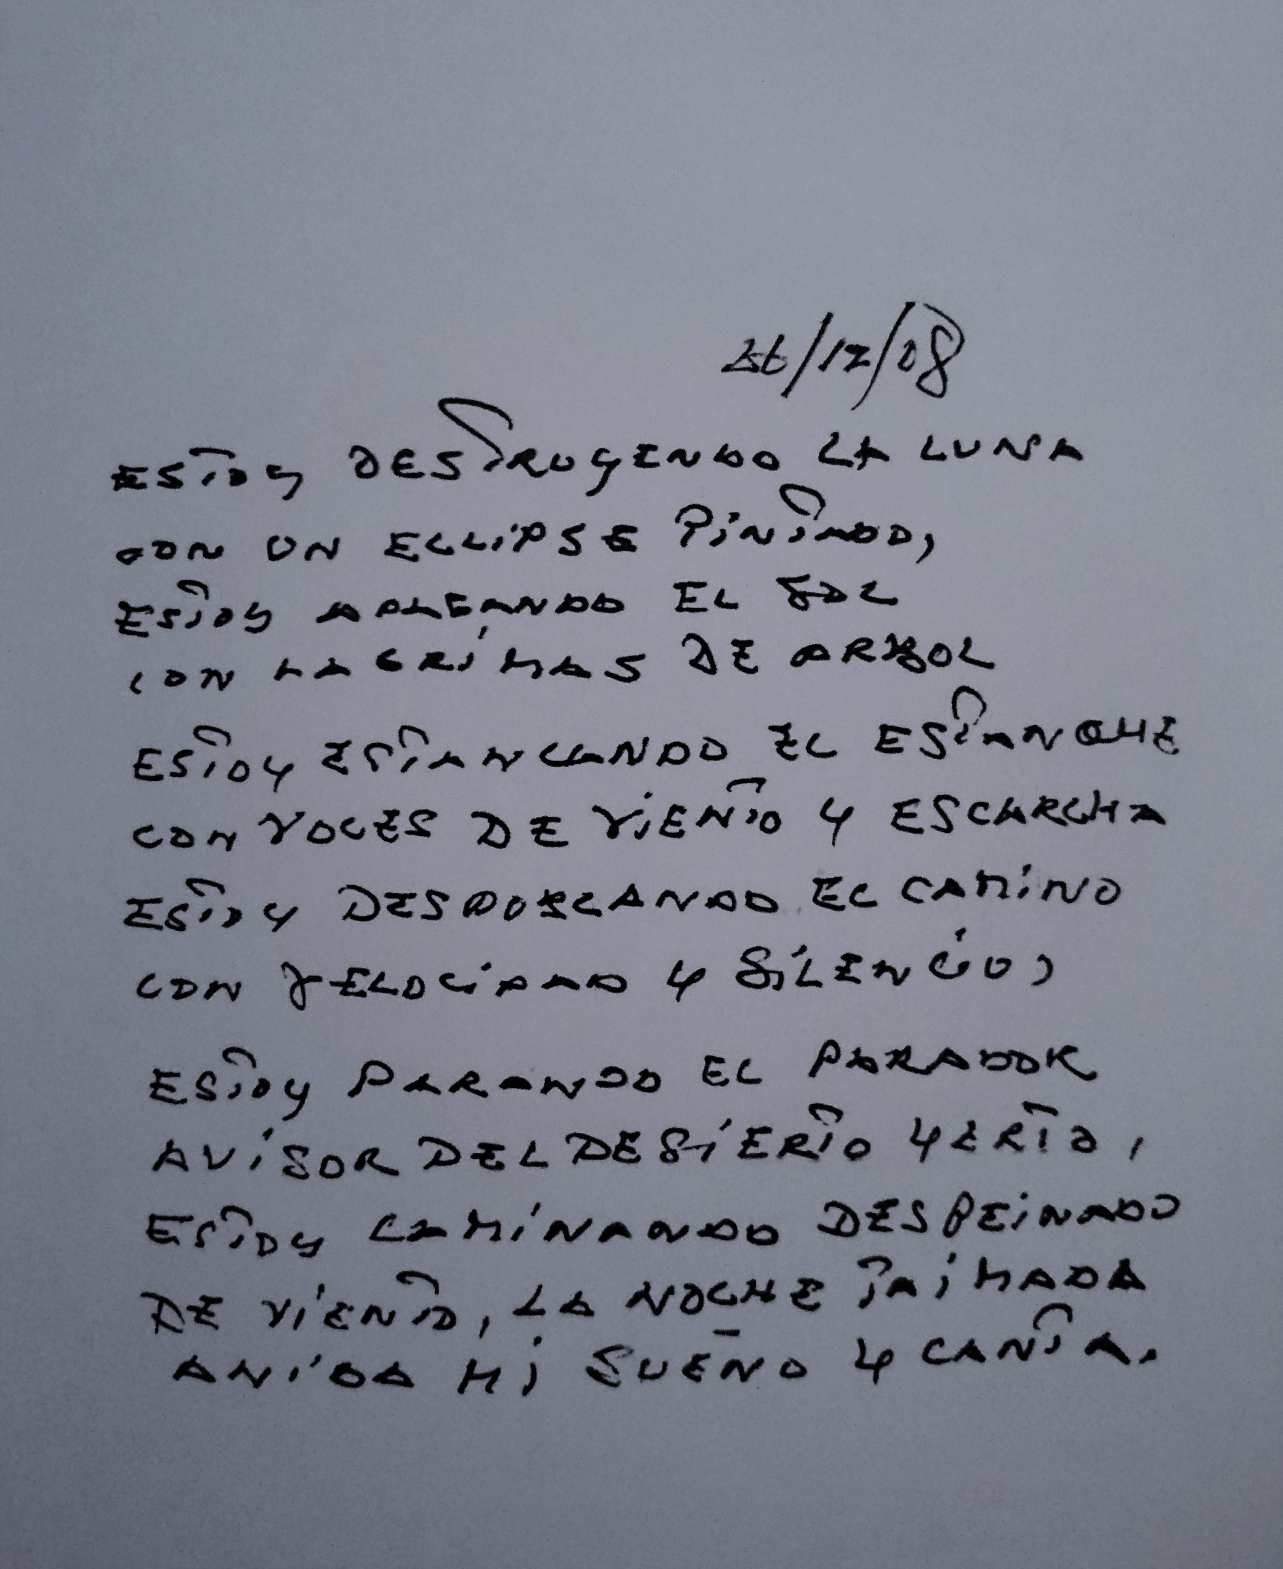 26/12/08
ESTOY DESTRUYENDO LA LUNA
CON UN ECLIPSE PINTADO,
ESTOY APLEANDO EL SOL
CON LAGRIMAS DE ARBOL
ESTOY ESTANCANDO EL ESTANQUE
CON VOCES DE VIENTO Y ESCARCHA
ESTOY DESDOBLANDO EL CAMINO
CON VELOCIDAD Y SILENCIO,
ESTOY PARANDO EL PARADOR
AVISOR DEL DESIERTO YERTO,
ESTOY CAMINANDO DESPEINADO
DE VIENTO, LA NOCHE TAIMADA
ANIDA MI SUEÑO Y CANTA.